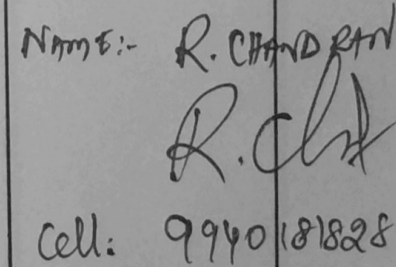 NAME:- R. CHANDRAN
R. Ch
Cell: 9940181828